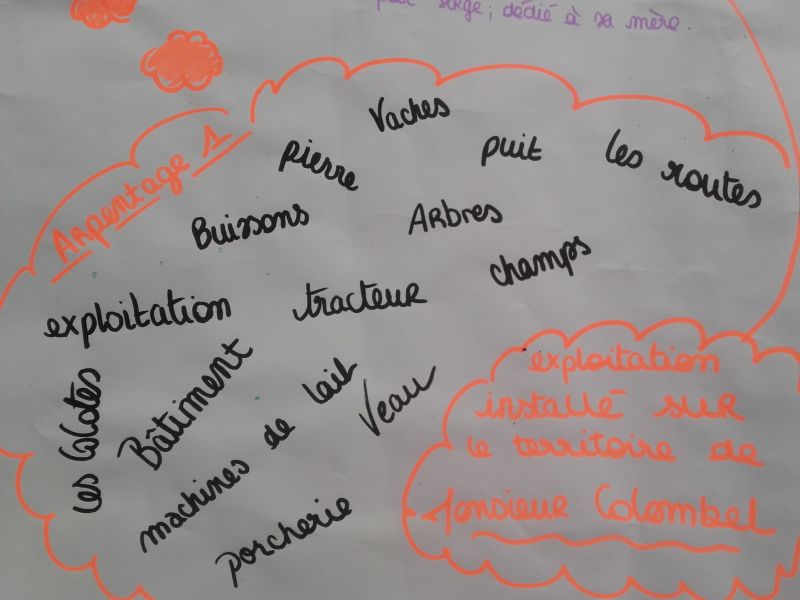 pour serge; dédié à sa mère.
Arpentage 1
Vaches
pierre
puit
les routes
Buissons
Arbres
champs
exploitation
tracteur
Bâtiment
machines de lait
Veau
porcherie
exploitation
installé sur
le territoire de
Monsieur Colombel